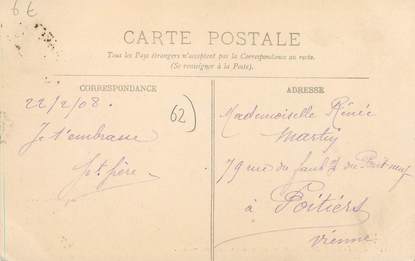 6€
CARTE POSTALE
Tous les Pays étrangers n'acceptent pas la Correspondance au recto.
(Se renseigner à la Poste).
CORRESPONDANCE
22/2/08.
Je t'embrasse
pt. frère.
62
ADRESSE
Mademoiselle Rénée
Martin
79 rue du faub g du Pont-neuf
à Poitiers
Vienne